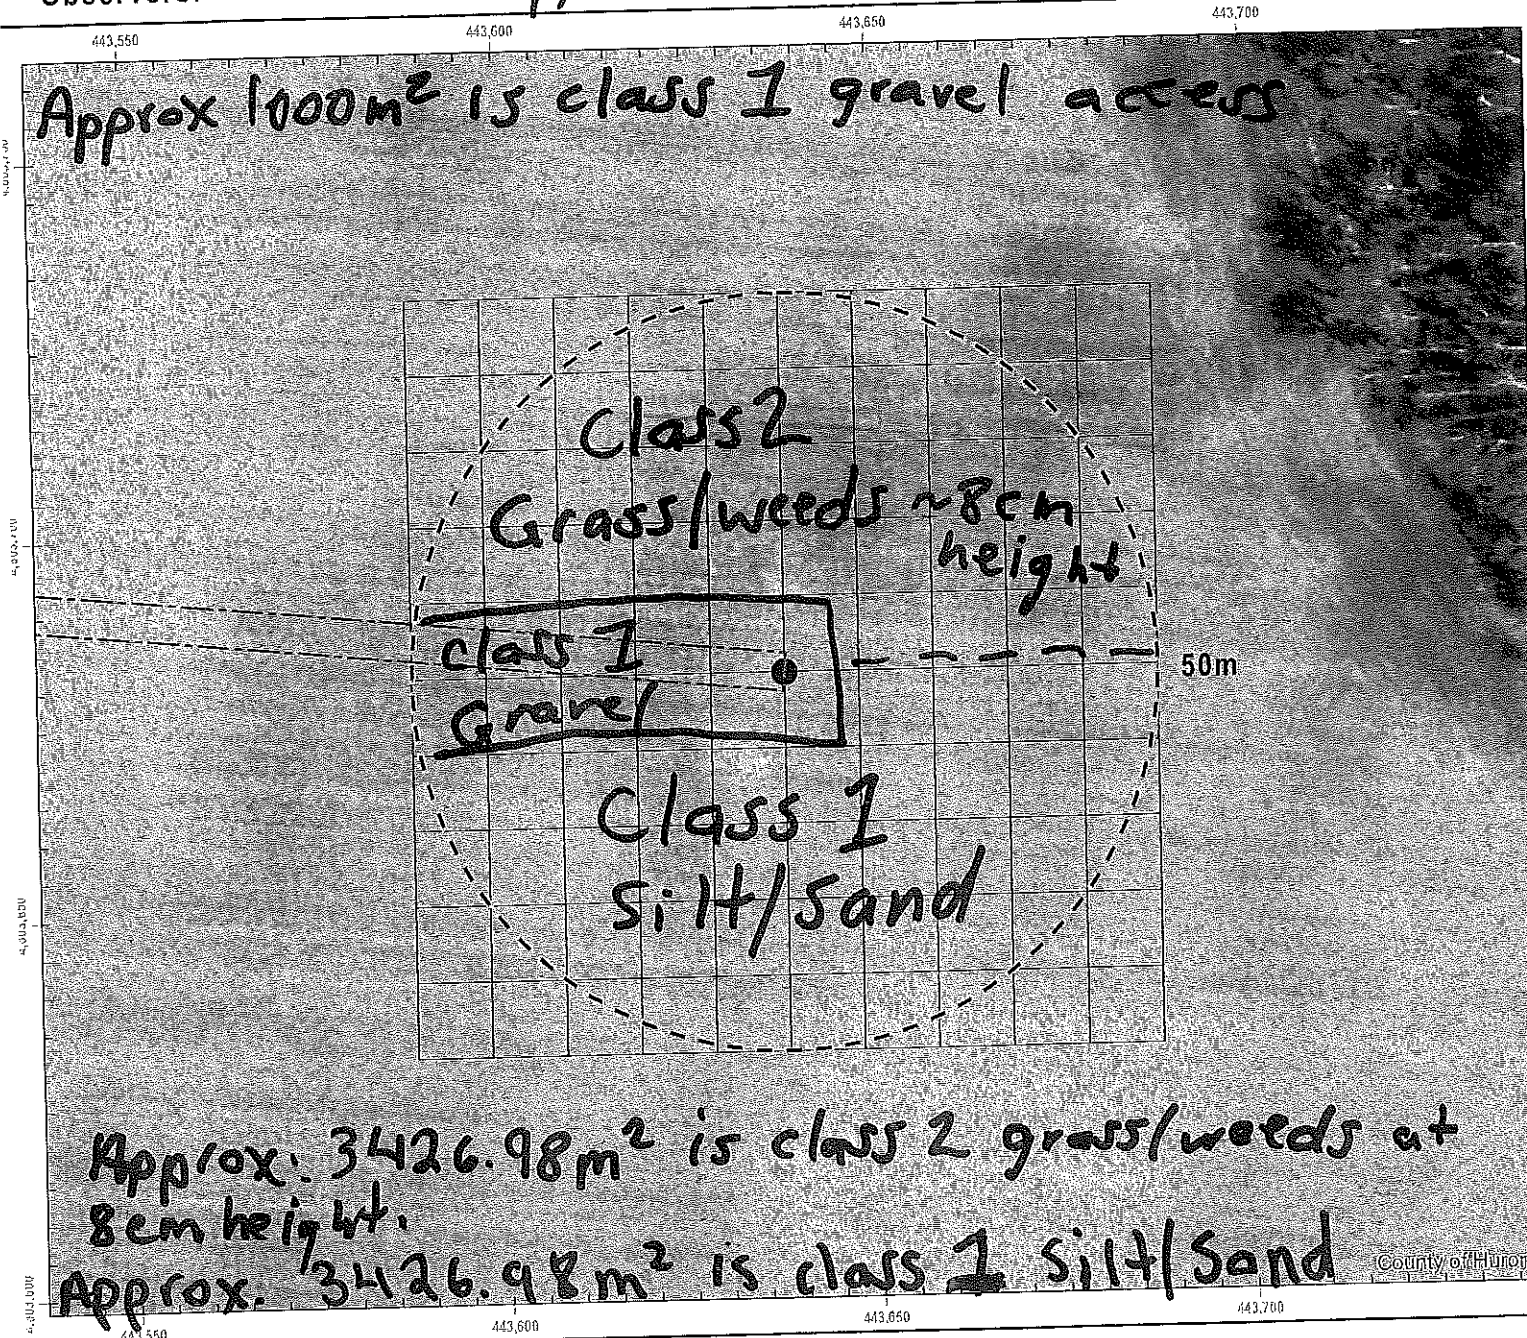 443,550 443,600 443,650 443,700
Approx 1000m² is class 1 gravel access
Class 2
Grass/weeds ~8cm
height
class 1
Gravel
50m
Class 1
Silt/Sand
Approx: 3426.98m² is class 2 grass/weeds at
8cm height.
Approx. 3426.98m² is class 1 Silt/Sand
County of Huron
443,550 443,600 443,650 443,700